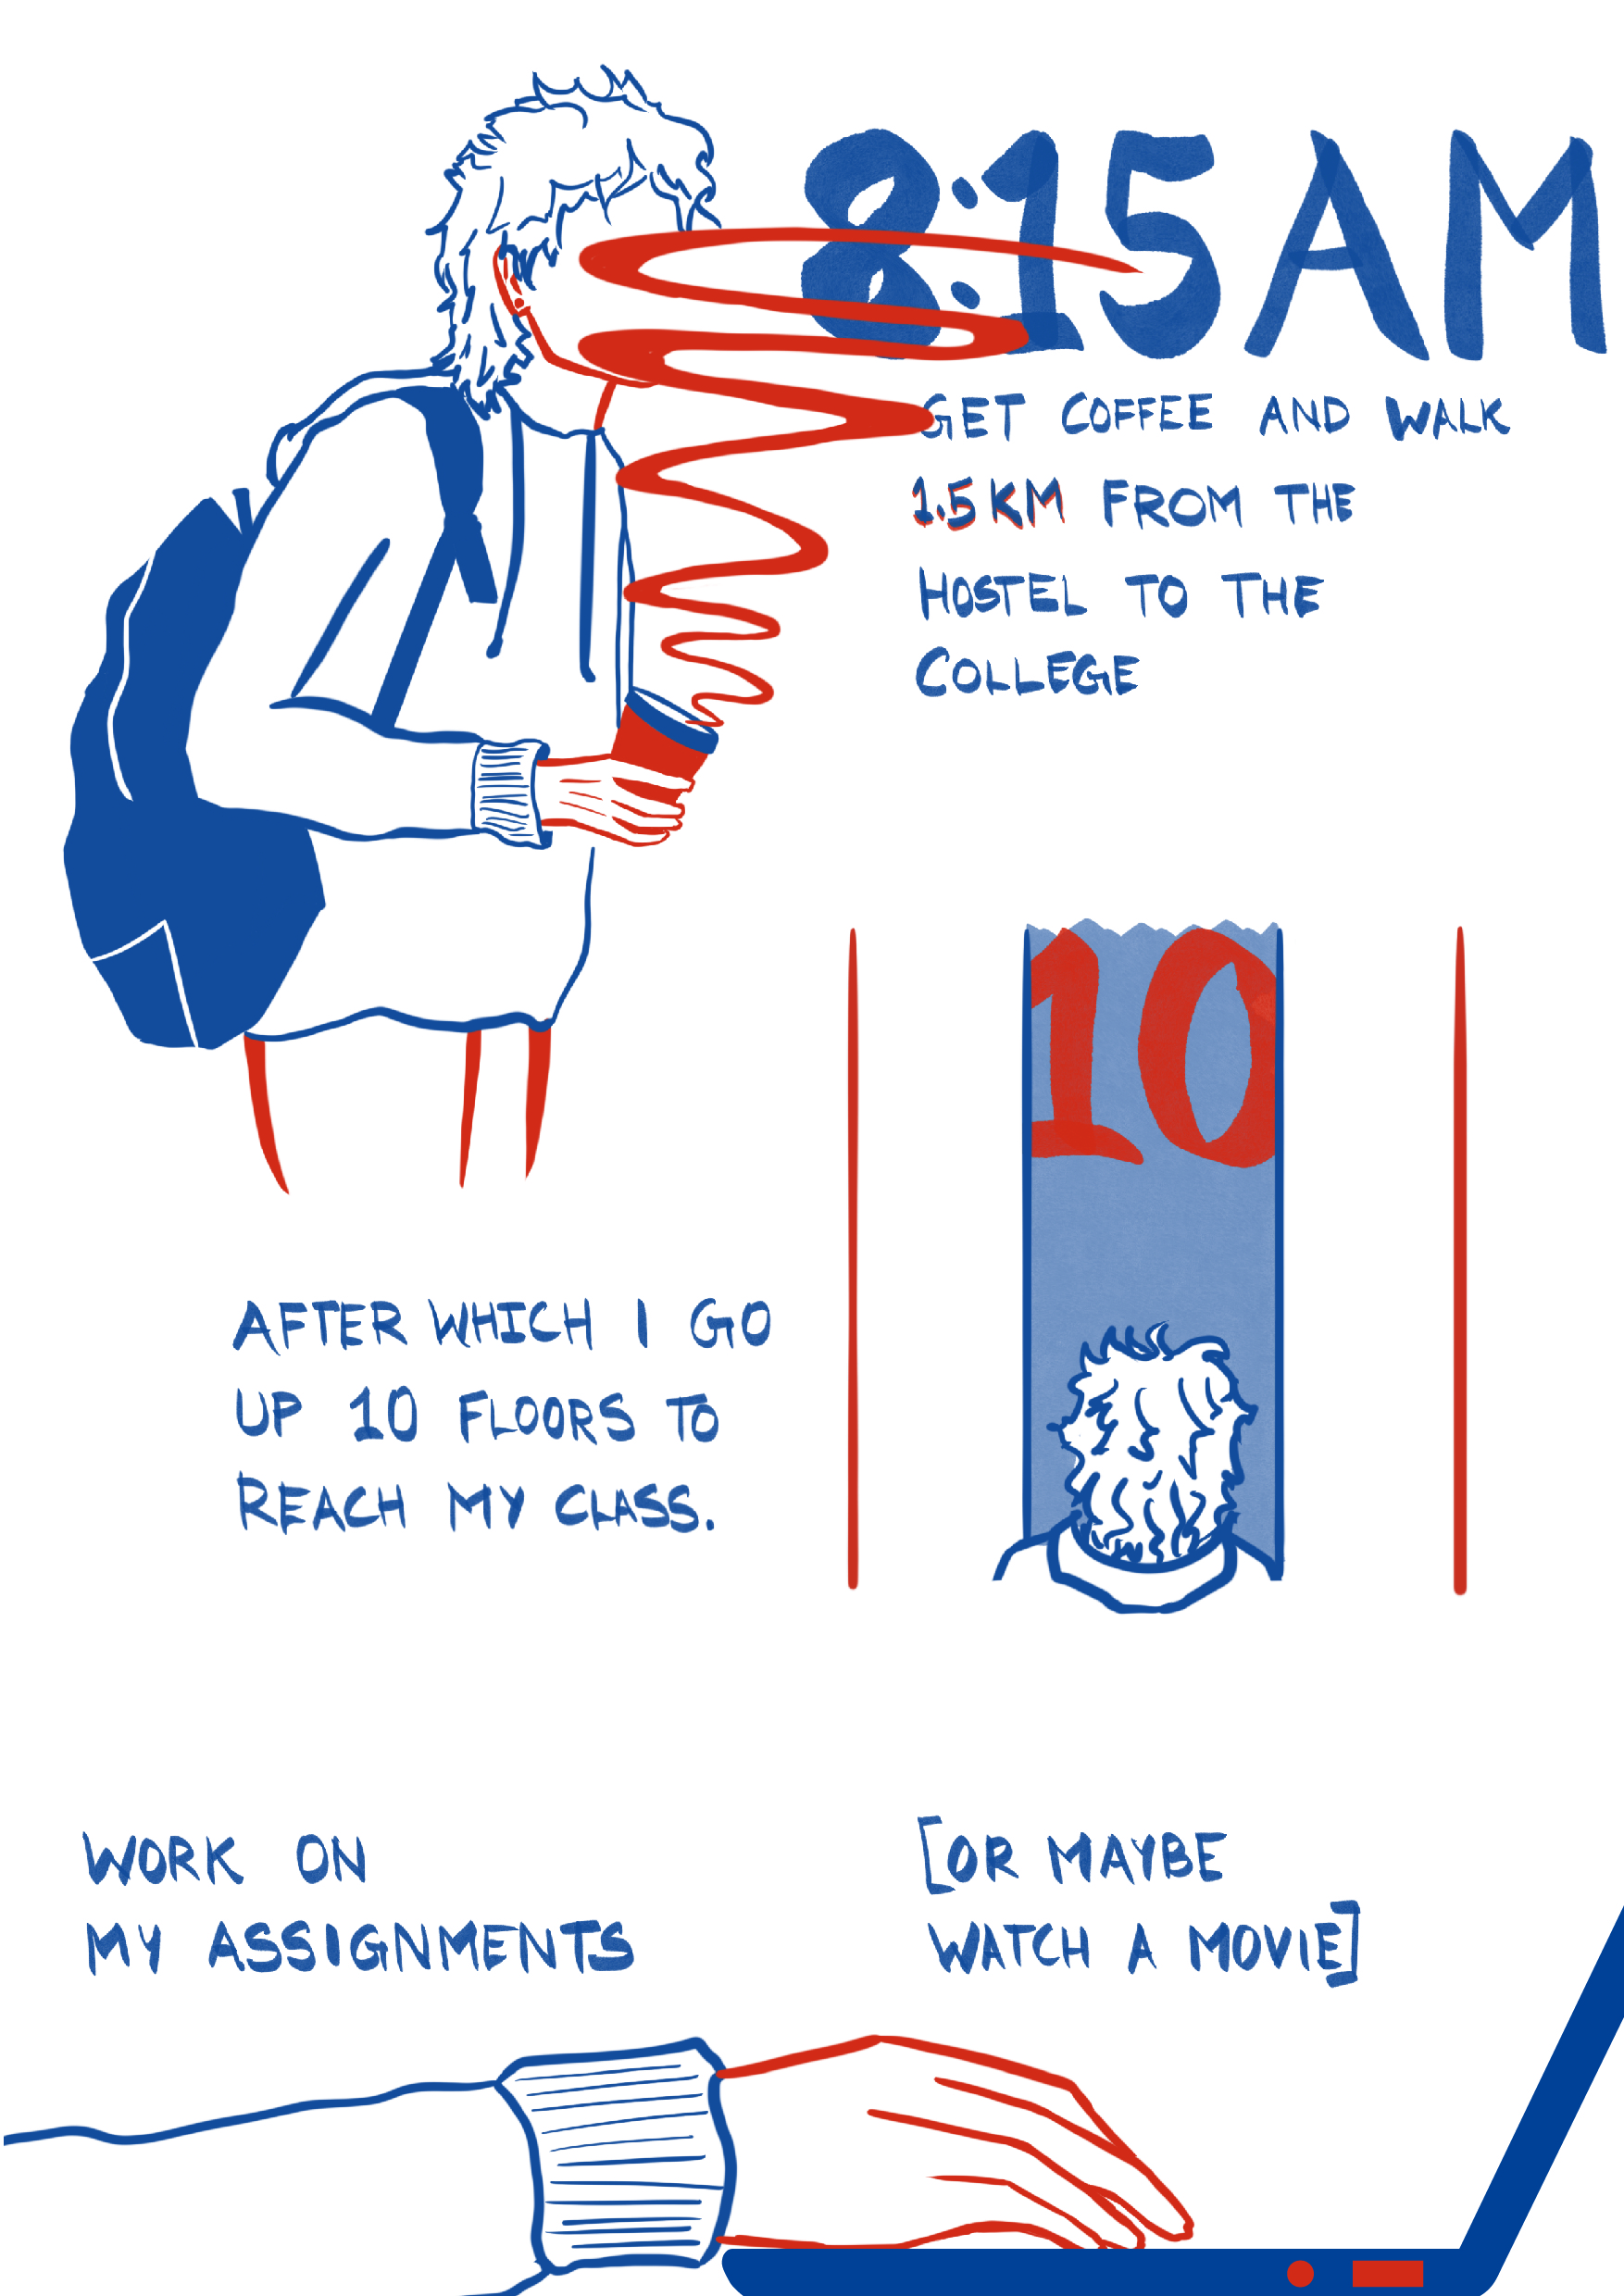 8:15 AM
GET COFFEE AND WALK
1.5 KM FROM THE
HOSTEL TO THE
COLLEGE
10
AFTER WHICH I GO
UP 10 FLOORS TO
REACH MY CLASS.
WORK ON
MY ASSIGNMENTS
[OR MAYBE
WATCH A MOVIE]